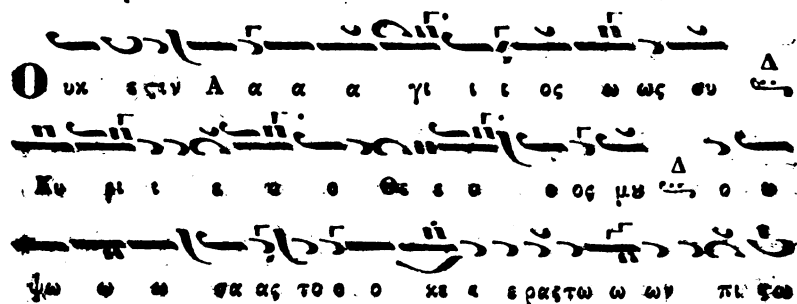 Ουκ ε ϛιν Α α α α γι ι ι ος ω ως συ Δ
Κυ ρι ι ε υ ο Θε ε ο ο ος μȣ Δ ο υ
ψω ω ω σα ας το ο ο κε ε ε ραςτω ω ων πι ϛω